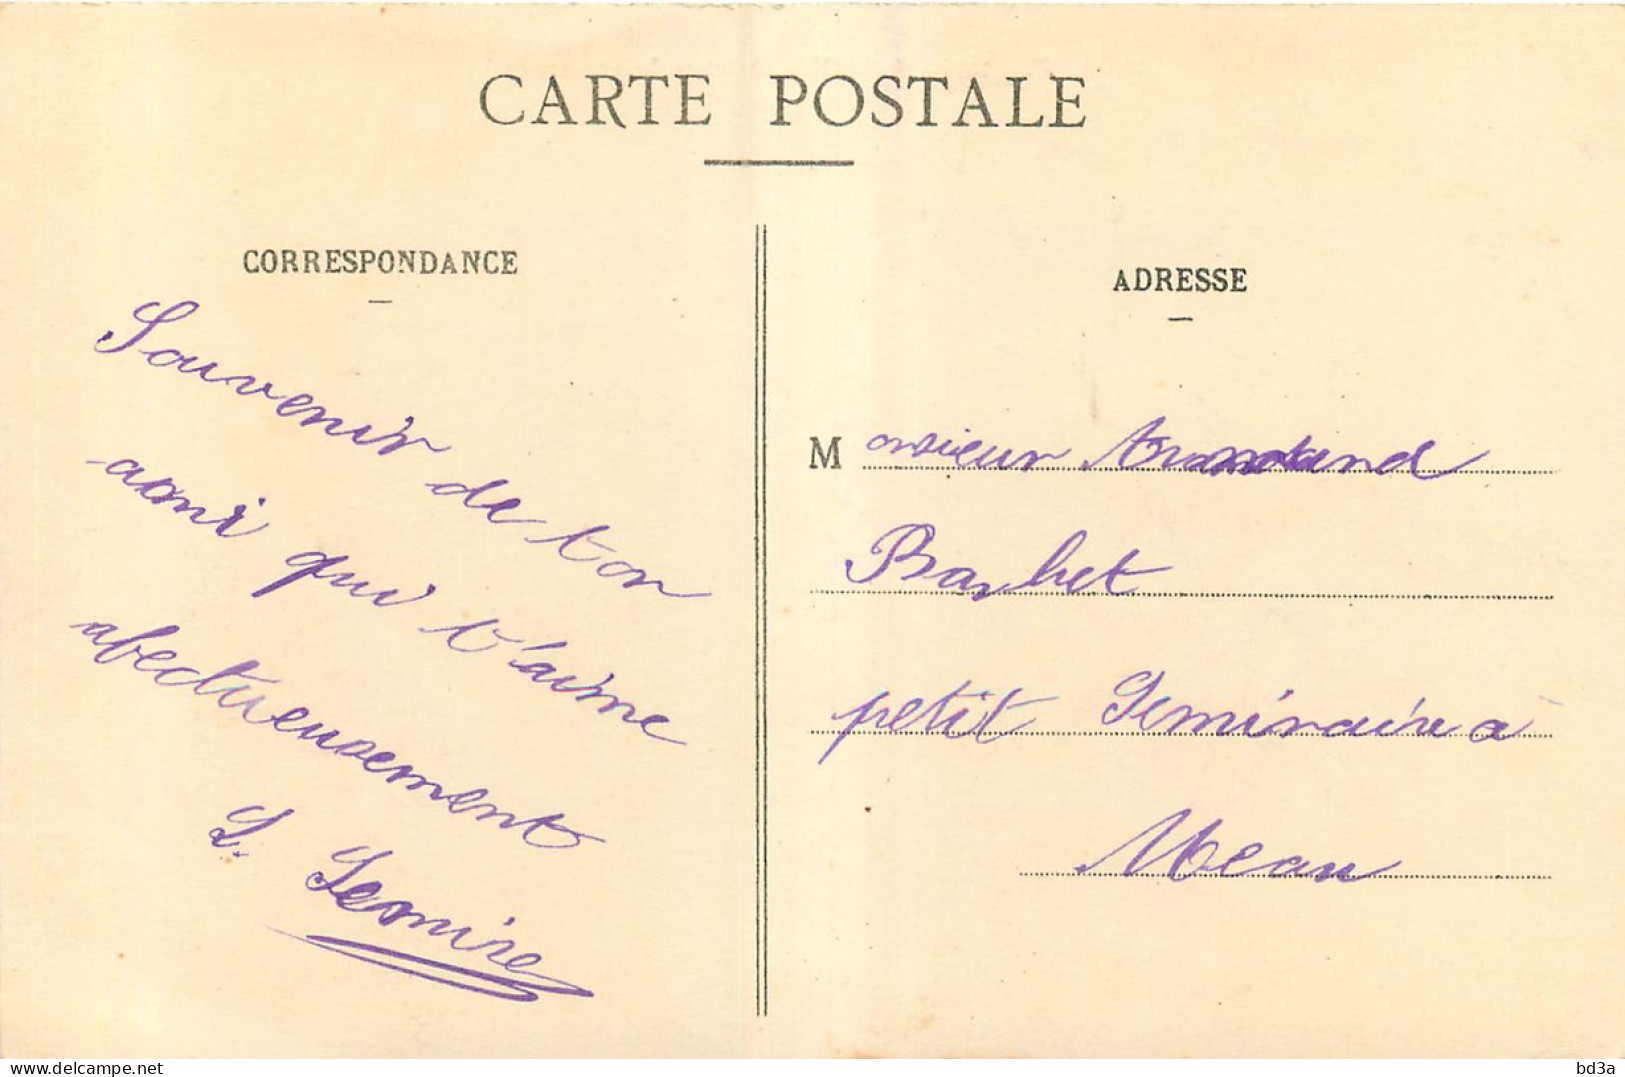 CARTE POSTALE
CORRESPONDANCE
Souvenir de ton
ami qui t'aime
afectueusement
L. Lemire
ADRESSE
Monsieur Armand
Barbet
petit Séminaire à
Meau
www.delcampe.net
bd3a